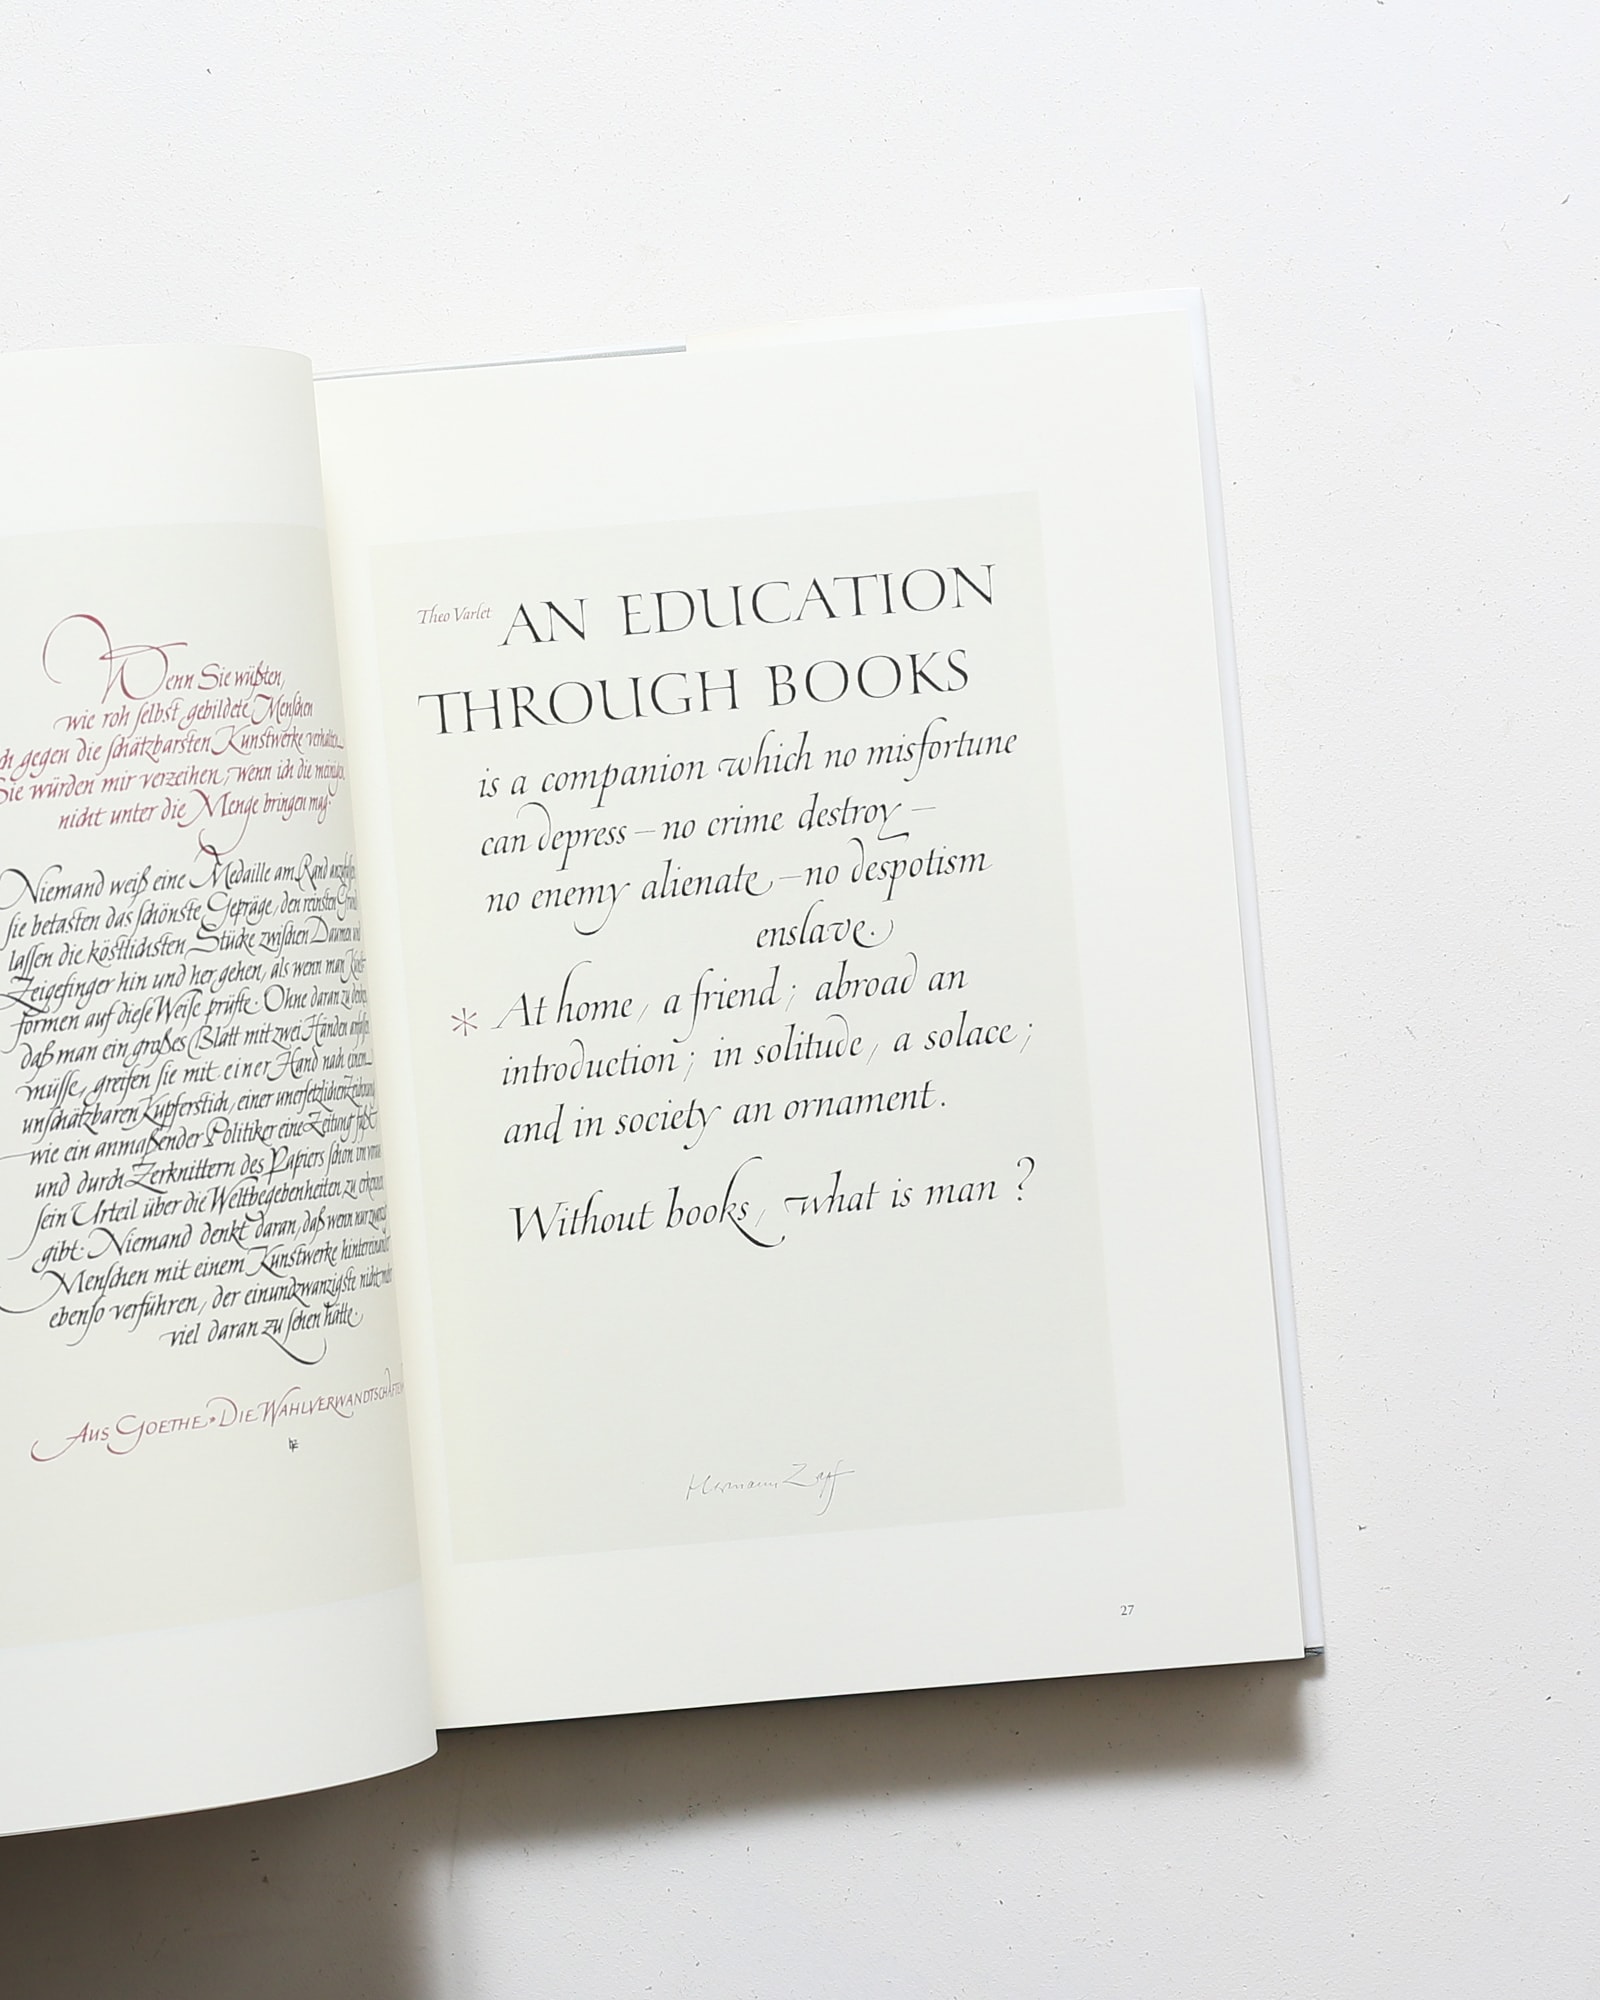 Wenn Sie wüßten,
wie roh selbst gebildete Menschen
ch gegen die schätzbarsten Kunstwerke verhalten
Sie würden mir verzeihen, wenn ich die meinigen
nicht unter die Menge bringen mag.
Niemand weiß eine Medaille am Rand anzufassen
sie betasten das schönste Gepräge, den reinsten Grund
lassen die köstlichsten Stücke zwischen Daumen und
Zeigefinger hin und her gehen, als wenn man Kunst-
formen auf diese Weise prüfte. Ohne daran zu denken
daß man ein großes Blatt mit zwei Händen anfassen
müsse, greifen sie mit einer Hand nach einem
unschätzbaren Kupferstich, einer unersetzlichen Zeichnung
wie ein anmaßender Politiker eine Zeitung faßt
und durch Zerknittern des Papiers schon im voraus
sein Urteil über die Weltbegebenheiten zu erkennen
gibt. Niemand denkt daran, daß wenn nur zwanzig
Menschen mit einem Kunstwerke hintereinander
ebenso verführen, der einundzwanzigste nicht mehr
viel daran zu sehen hätte.
AUS GOETHE • DIE WAHLVERWANDTSCHAFTEN
Theo Varlet AN EDUCATION
THROUGH BOOKS
is a companion which no misfortune
can depress – no crime destroy –
no enemy alienate – no despotism
enslave.
* At home, a friend; abroad an
introduction; in solitude, a solace;
and in society an ornament.
Without books, what is man?
Hermann Zapf
27